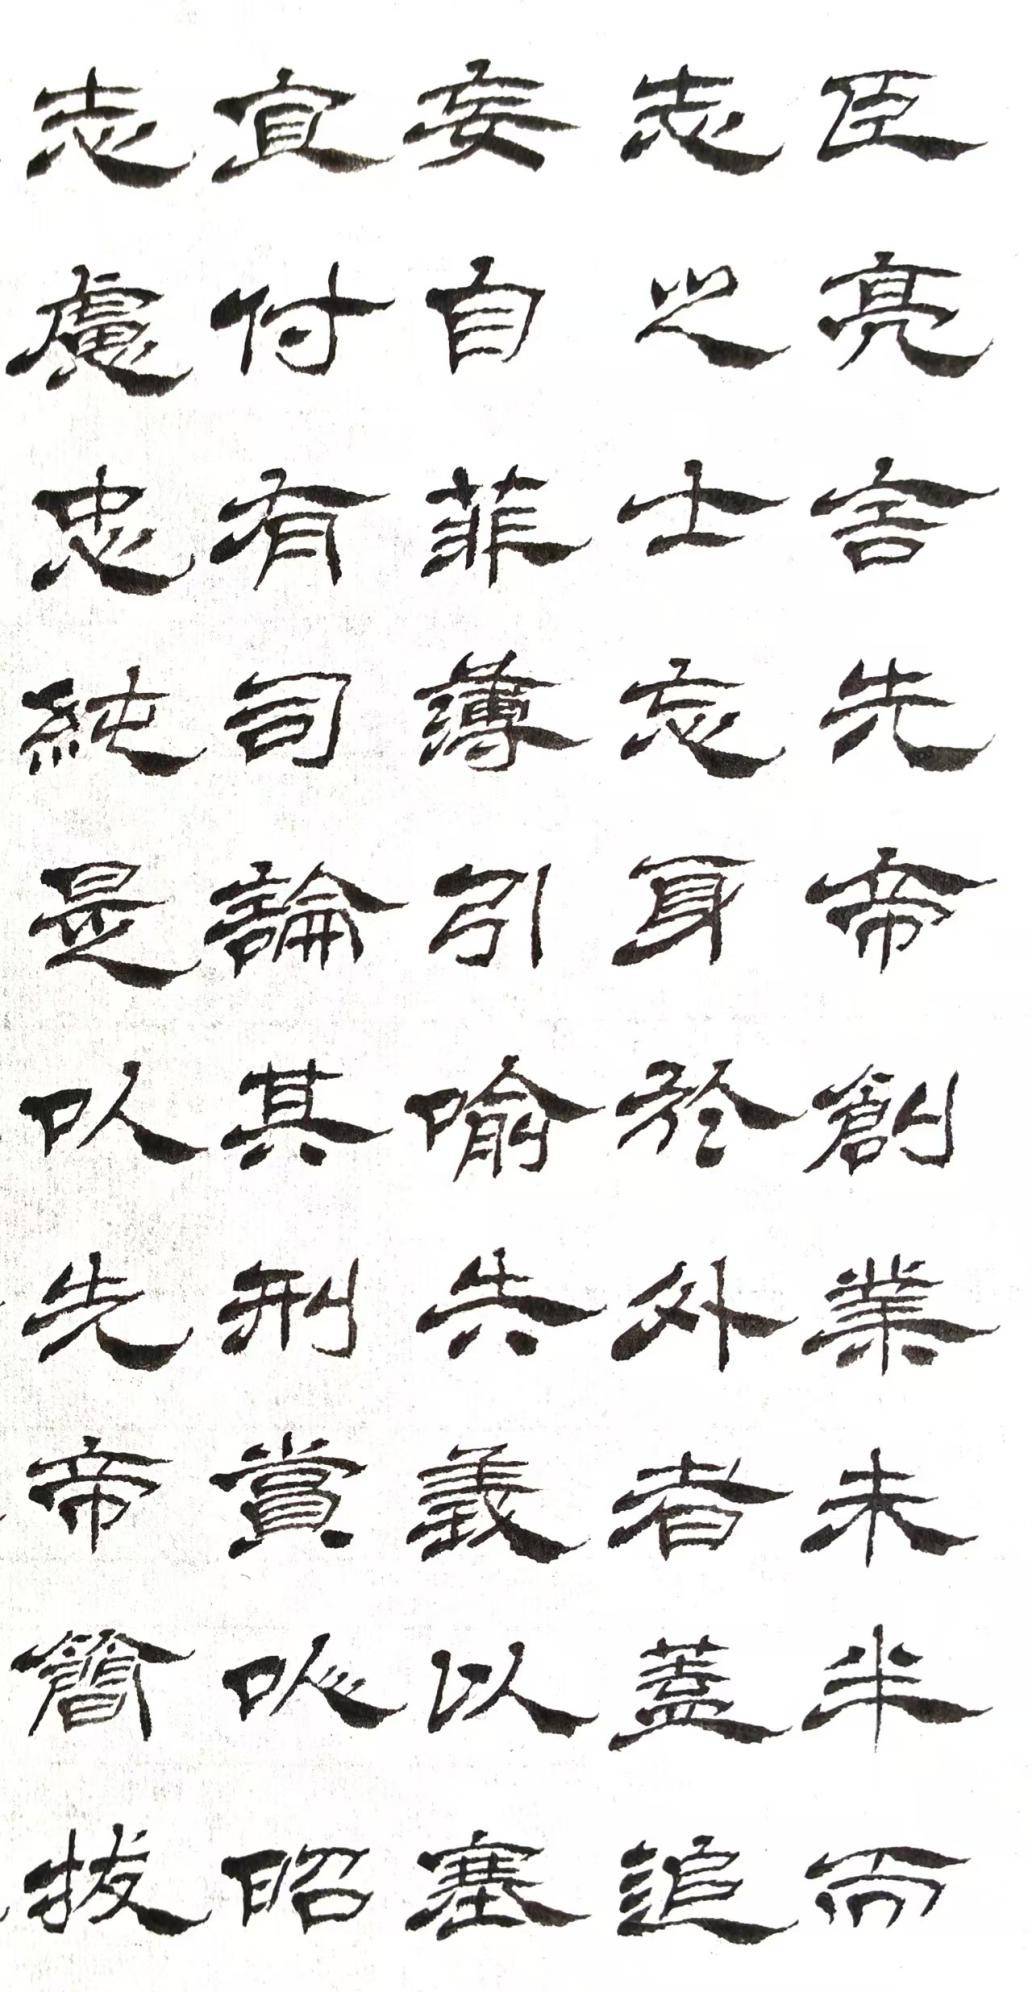 臣亮言先帝創業未半而
志之士忘身於外者蓋追
妄自菲薄引喻失義以塞
宜付有司論其刑賞以昭
志慮忠純是以先帝簡拔